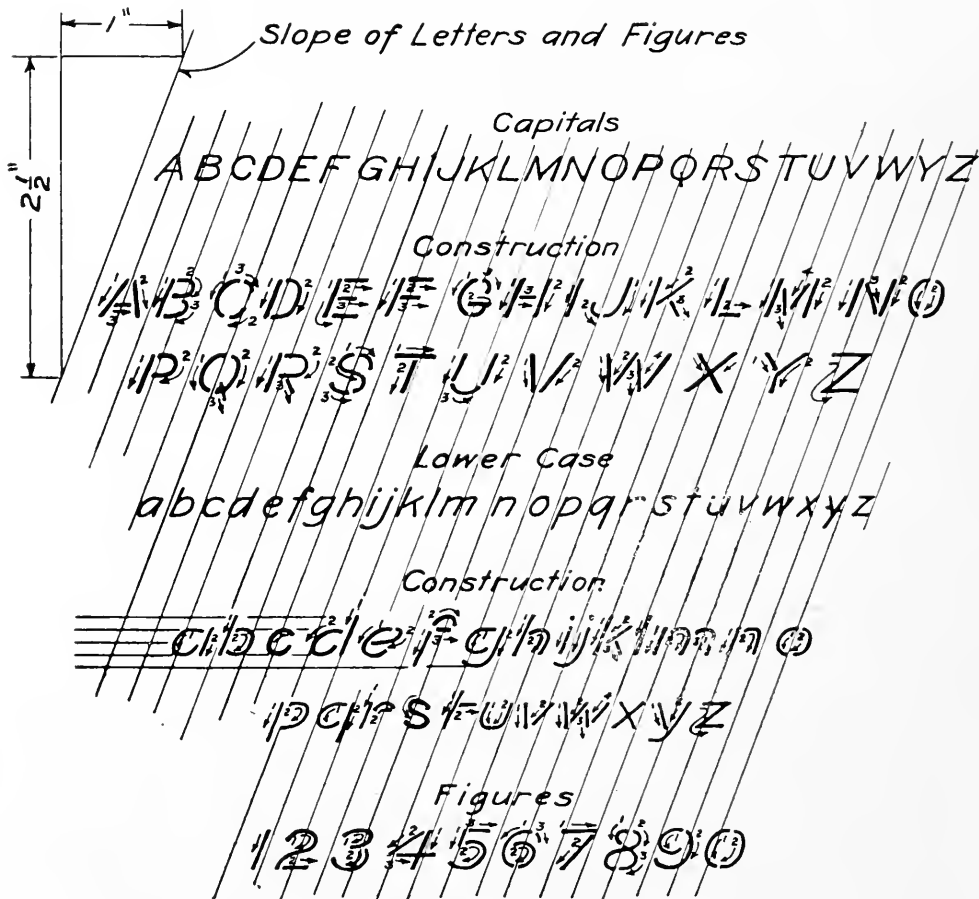 1"
Slope of Letters and Figures
2 1/2"
Capitals
ABCDEFGHIJKLMNOPQRSTUVWYZ
Construction
A B C D E F G H I J K L M N O
P Q R S T U V W X Y Z
Lower Case
abcdefghijklmnopqrstuvwxyz
Construction
a b c d e f g h i j k l m n o
p q r s t u v w x y z
Figures
1 2 3 4 5 6 7 8 9 0